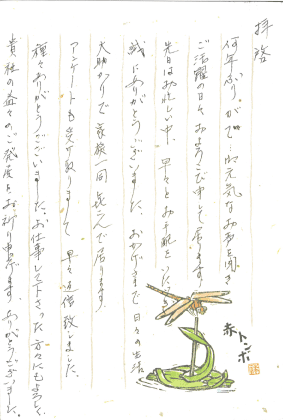 拝啓
何年ぶりかで…お元気なお声を聞き
ご活躍の日々およろこび申して居ります。
先日はお忙しい中、早々とお手配をいただき
誠にありがとうございました。おかげさまで日々の生活
大助かりで家族一同喜んで居ります。
アンケートも受け取りまして早々返信致しました。
種々ありがとうございました。お仕事して下さった方々にもよろしく
貴社の益々のご発展をお祈り申し上げます。ありがとうございました。
赤トンボ